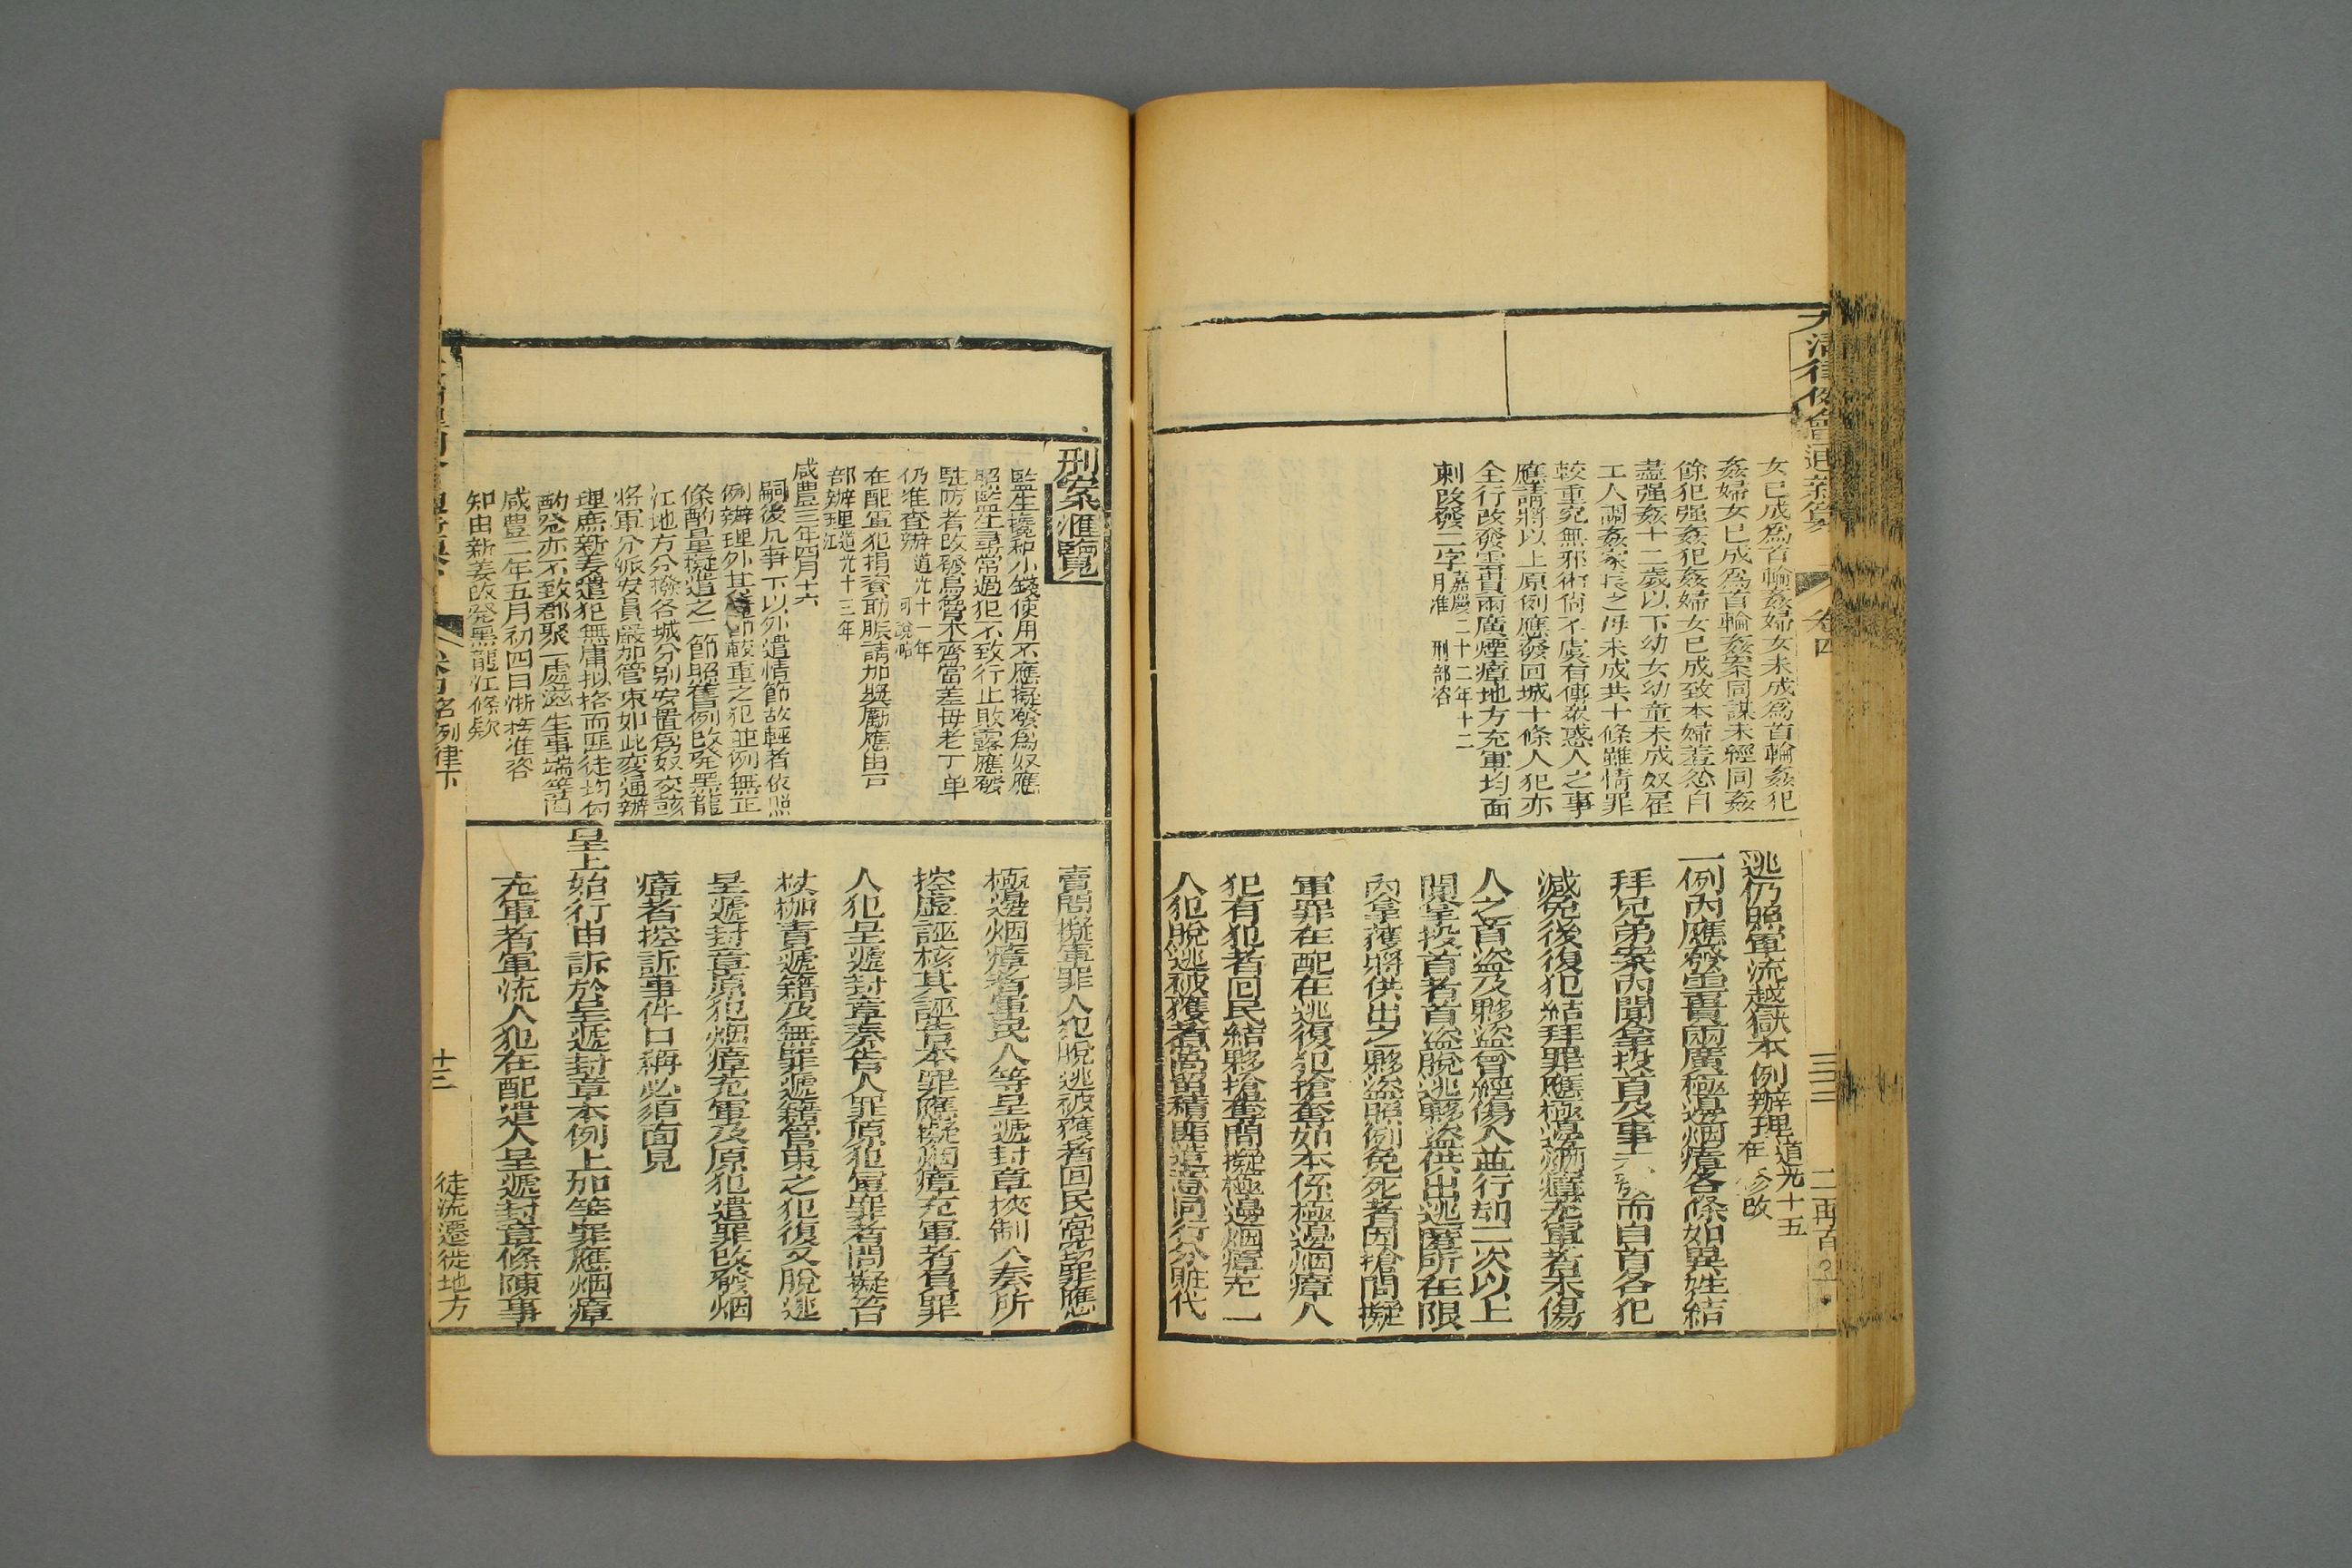 大清律例會通新纂
卷四
三三
女已成爲首輪姦婦女未成爲首輪姦犯
姦婦女已成爲首輪姦案同謀未經同姦
餘犯强姦犯姦婦女已成致本婦羞忿自
盡强姦十二歲以下幼女幼童未成奴雇
工人調姦家長之母未成共十條雖情罪
較重究無邪術尚不虞有傳衆惑人之事
應請將以上原例應發回城十條人犯亦
全行改發雲貴兩廣煙瘴地方充軍均面
刺改發二字嘉慶二十二年十二
月准 刑部咨
逃仍照軍流越獄本例辦理道光十五
在 修改
一例內應發雲貴兩廣極邊烟瘴各條如異姓結
拜兄弟案內聞拿投首及事未發而自首各犯
減免後復犯結拜罪應極邊烟瘴充軍者未傷
人之首盜及夥盜曾經傷人並行刦二次以上
聞拿投首者首盜脫逃夥盜供出逃匿所在限
內拿獲將供出之夥盜照例免死者因搶問擬
軍罪在配在逃復犯搶奪如本係極邊烟瘴人
犯有犯者回民結夥搶奪問擬極邊烟瘴充一
人犯脫逃被獲者窩留積匪造意同行分賍代
刑案滙覽
監生攙和小錢使用不應擬發爲奴應
照監生尋常過犯不致行止敗露應發
駐防者改發烏魯木齊當差毋老丁单
仍准查辦道光十一年
說帖
在配軍犯捐資助賑請加獎勵應由吏
部辦理道光十三年
咸豊三年四月十六
嗣後凡事 下以外遣情節故輕者依照
例辦理外其情節較重之犯並例無正
條酌量擬遣之一節照舊例改発黑龍
江地方分撥各城分别安置爲奴交該
将軍分派安員嚴加管束如此变通辦
理庶新姜遣犯無庸拟格而匪徒均匀
酌発亦不致群聚一處滋生事端等因
咸豊二年五月初四日浙桉准咨
知由新姜改発黑龍江條欵
賣問擬軍罪人犯脫逃被獲者回民窩窃罪應
極邊烟瘴者軍民人等呈遞封章挾制入奏所
控虛誣核其誣告本罪應擬烟瘴充軍者負罪
人犯呈遞封章奏告人罪原犯軍罪者問擬笞
杖枷責遞籍及無罪遞籍管束之犯復又脫逃
呈遞封章原犯烟瘴充軍及原犯遣罪改發烟
瘴者控訴事件口稱必須面見
呈上始行申訴於呈遞封章本例上加等罪應烟瘴
充軍者軍流人犯在配遣人呈遞封章條陳事
名例律下
十三
徒流遷徙地方